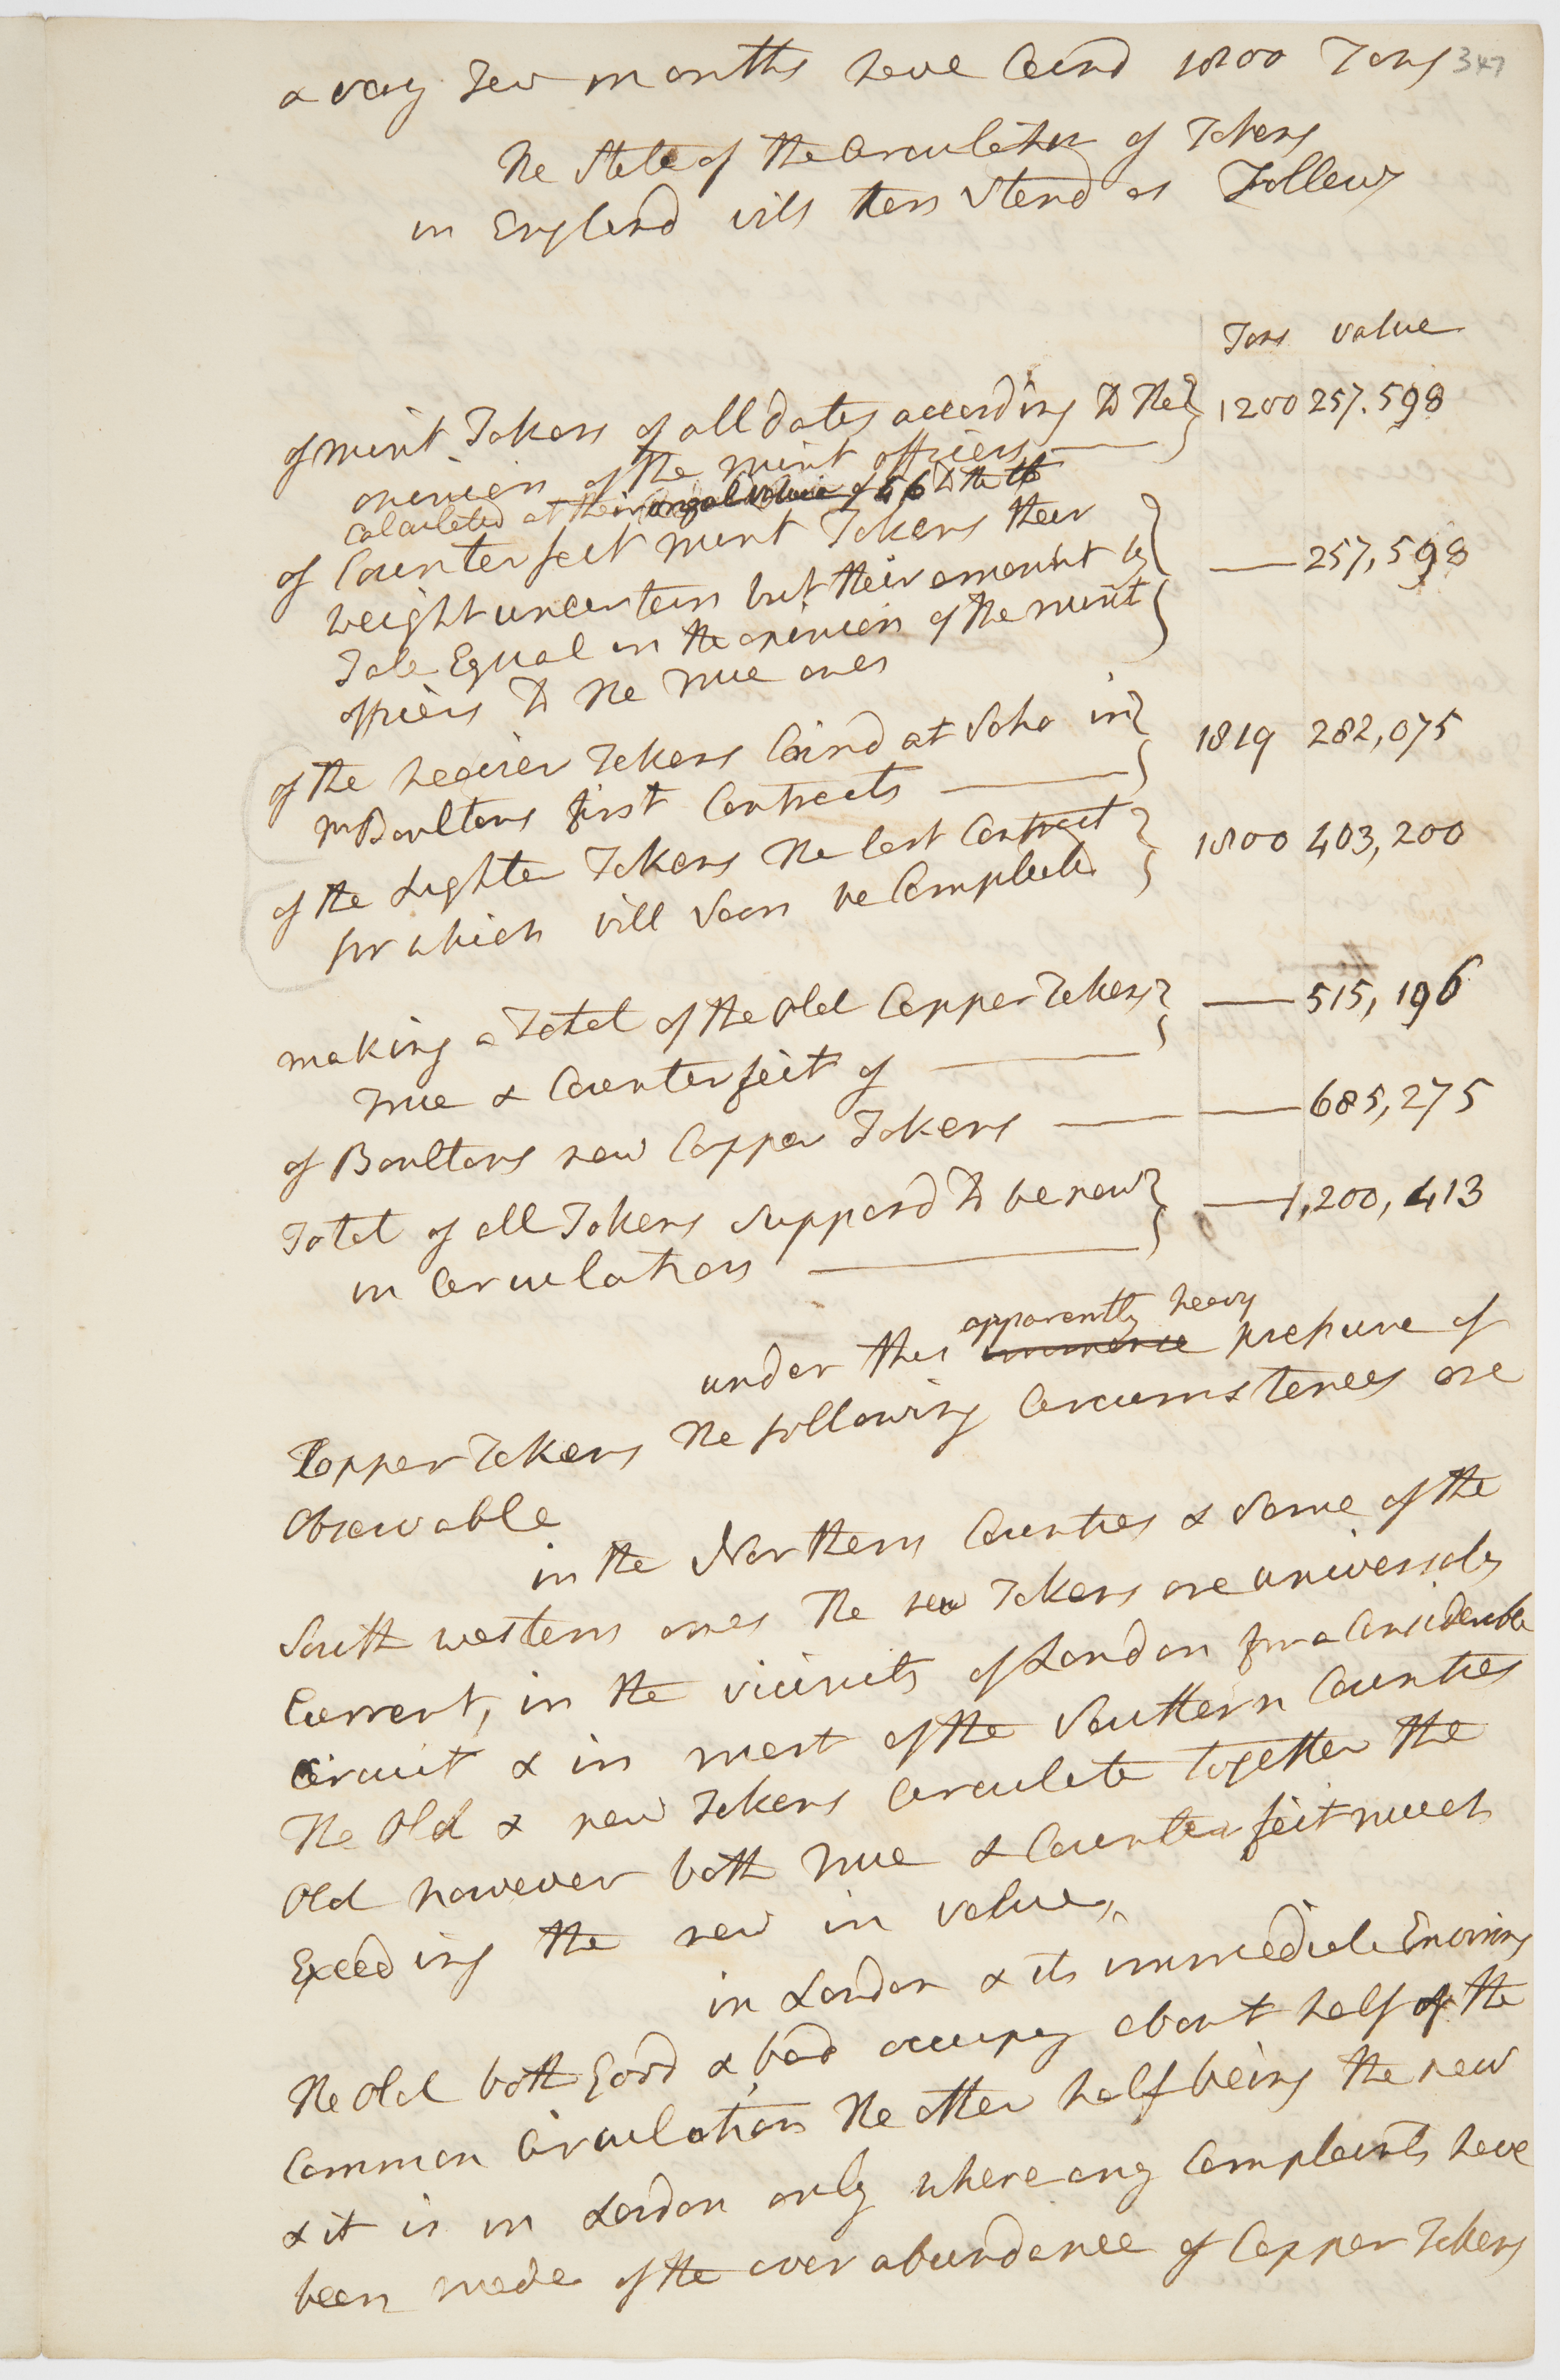 a very Few months have Coind 1800 Tons 347
The State of the Circulation of Tokens
in England will then Stand as Follows
Tons value
of mint Tokens of all dates according to the } 1200 257.598
opinion of the mint officers
calculated at their original value of 56 to the lb
of Counterfeit mint Tokens their
weight uncertain but their amount by } — 257,598
Tale Equal in the opinion of the mint
officers to the True ones
of the heavier Tokens Coind at Soho in } 1819 282,075
Mr Boultons first Contracts
of the Lighter Tokens the last Contract } 1800 403,200
for which will Soon be Compleated
making a Total of the Old Copper Tokens } — 515,196
True & Counterfeit of
of Boultons new Copper Tokens — 685,275
Total of all Tokens Supposd to be now } — 1,200,413
in Circulation
apparently heavy
under this immense pressure of
Copper Tokens the following Circumstances are
Observable
in the Northern Counties & Some of the
South western ones The new Tokens are universaly
Current, in the vicinity of London for a Considerable
Circuit & in most of the Southern Counties
The Old & new Tokens Circulate together the
Old however both True & Counterfeit much
Exceeding the new in value,
in London & its immediate Environs
The Old both Good & bad occupy about half of the
Common Circulation The other half being the new
& it is in London only where any Complaints have
been made of the over abundance of Copper Tokens